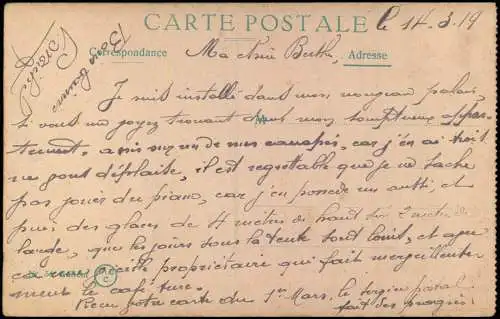 CARTE POSTALE
le 14.3.19
Correspondance
Adresse
Ma chère Berthe,
Je suis installé dans mon nouveau palais,
si vous me voyez trônant dans mon somptueux appar-
tement. assis sur un de mes canapés, car j'en ai trois
ne vous déplaise, il est regrettable que je ne sache
pas jouer du piano, car j'en possède un aussi, et
puis des glaces de 4 mètres de haut sur 2 mètres de
large, que les jours sous la tente sont loin, et avec
ça une propriétaire qui fait merveilleuse
ment le café turc.
Reçu ta carte du 1er Mars, le service postal
fait des progrès.